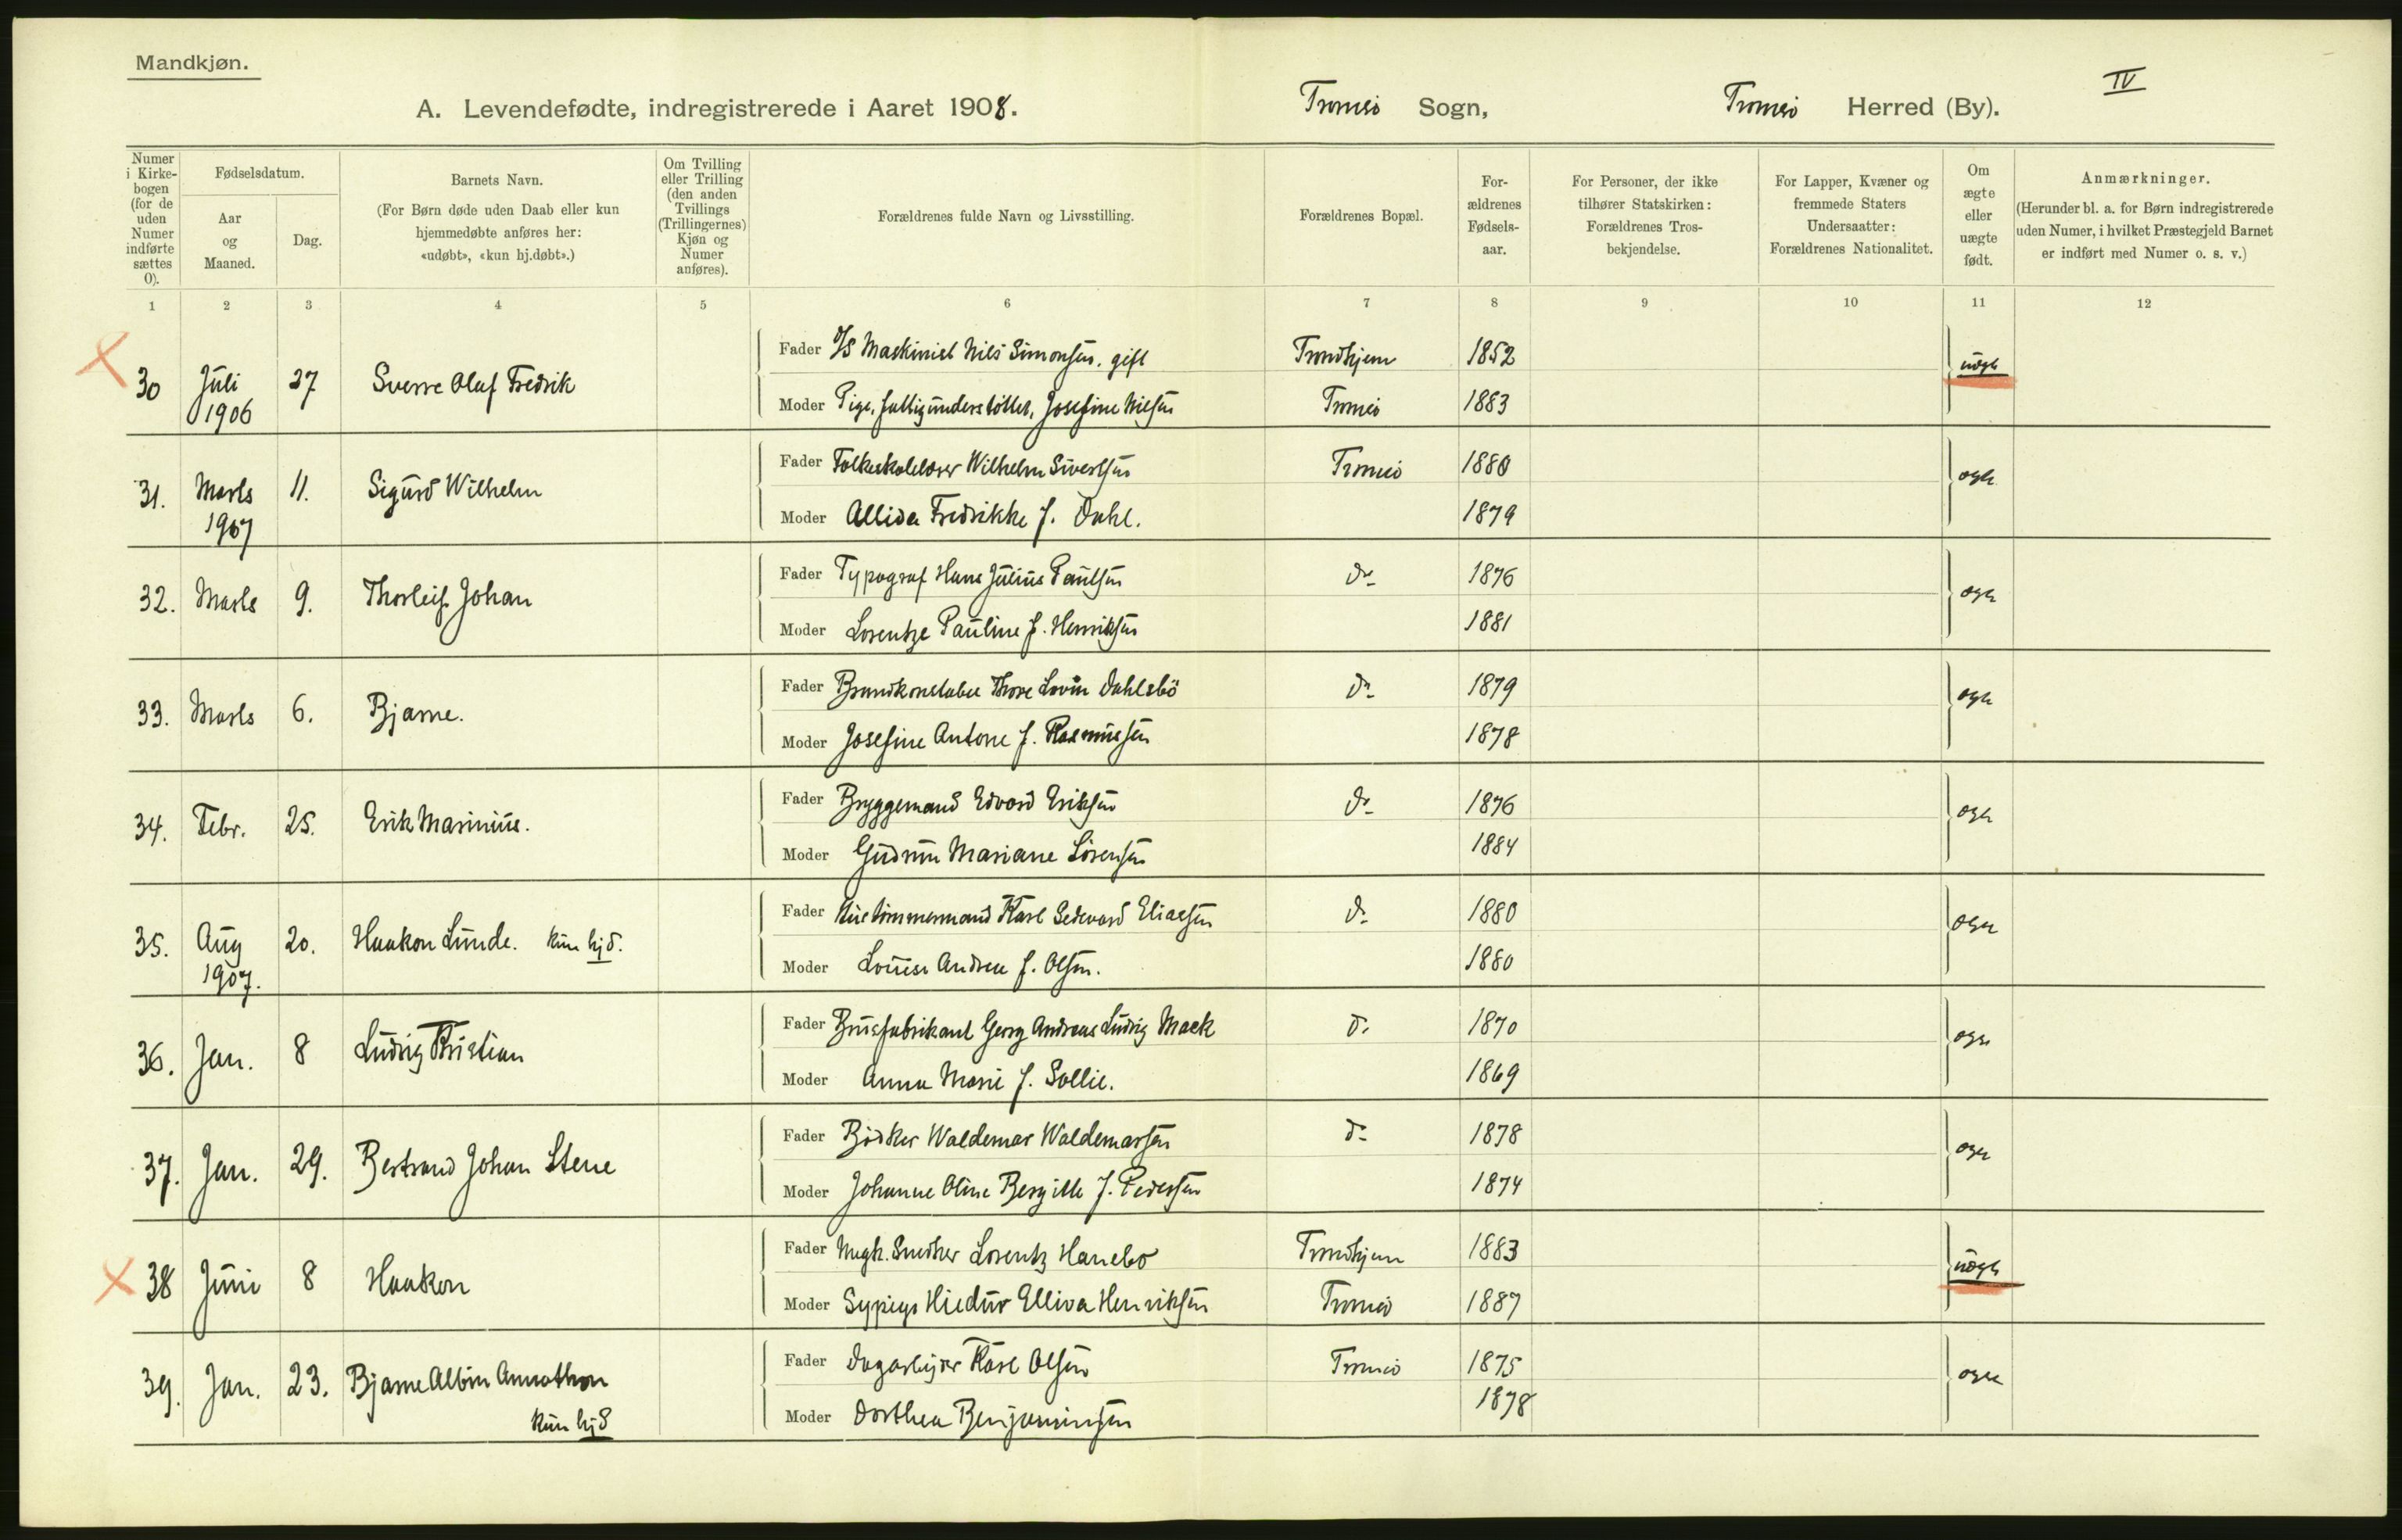 Mandkjøn.
IV
A. Levendefødte, indregistrerede i Aaret 1908. Tromsö Sogn, Tromsö Herred (By).
Numer i Kirkebogen (for de uden Numer indførte sættes 0).
Fødselsdatum.
Aar og Maaned.
Dag.
Barnets Navn.
(For Børn døde uden Daab eller kun hjemmedøbte anføres her: «udøbt», «kun hj.døbt».)
Om Tvilling eller Trilling (den anden Tvillings (Trillingernes) Kjøn og Numer anføres).
Forældrenes fulde Navn og Livsstilling.
Forældrenes Bopæl.
For-ældrenes Fødsels-aar.
For Personer, der ikke tilhører Statskirken: Forældrenes Tros-bekjendelse.
For Lapper, Kvæner og fremmede Staters Undersaatter: Forældrenes Nationalitet.
Om ægte eller uægte født.
Anmærkninger.
(Herunder bl. a. for Børn indregistrerede uden Numer, i hvilket Præstegjeld Barnet er indført med Numer o. s. v.)
1 2 3 4 5 6 7 8 9 10 11 12
30 Juli 1906 27 Sverre Olaf Fredrik
Fader D/S Maskinist Nils Simonsen, gift Trondhjem 1852 uægte
Moder Pige, fattigunderstöttet, Josefine Nilsen Tromsö 1883
31. Marts 1907 11. Sigurd Wilhelm
Fader Folkeskolelærer Wilhelm Sivertsen Tromsö 1880 ægte
Moder Allida Fredrikke f. Dahl. 1879
32. Marts 9. Thorleif Johan
Fader Typograf Hans Julius Paulsen do 1876 ægte
Moder Lorentze Pauline f. Henriksen 1881
33. Marts 6. Bjarne.
Fader Brandkonstabel Thore Lovin Dahlsbö do 1879 ægte
Moder Josefine Antone f. Rasmussen 1878
34. Febr. 25. Erik Marinius.
Fader Bryggemand Edvard Eriksen do 1876 ægte
Moder Gudrun Mariane Sörensen 1884
35. Aug 1907. 20. Haakon Lunde. kun hjd.
Fader Hustömmermand Karl Sedevard Eliassen do 1880 ægte
Moder Lovise Andrea f. Olsen. 1880
36. Jan. 8 Ludvig Kristian
Fader Brusfabrikant Georg Andreas Ludvig Mack do 1870 ægte
Moder Anna Marie f. Sollie. 1869
37. Jan. 29. Bertrand Johan Stene
Fader Bödker Waldemar Waldemarsen do 1878 ægte
Moder Johanne Oline Bergitte f. Pedersen 1874
38 Juni 8 Haakon
Fader Ungk. Snedker Lorentz Hanebo Trondhjem 1883 uægte
Moder Sypige Hildur Elliva Henriksen Tromsö 1887
39. Jan. 23. Bjarne Albin Annathon kun hjd
Fader Dagarbejder Karl Olsen Tromsö 1875 ægte
Moder Dorthea Benjaminsen 1878